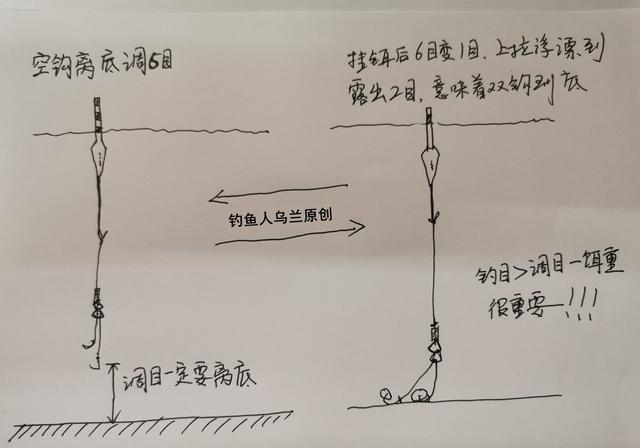 空钩离底调5目
挂饵后6目变1目，上拉浮漂到
露出2目，意味着双钩到底
钓鱼人乌兰原创
钓目>调目一饵重
很重要——!!!
调目一定要离底